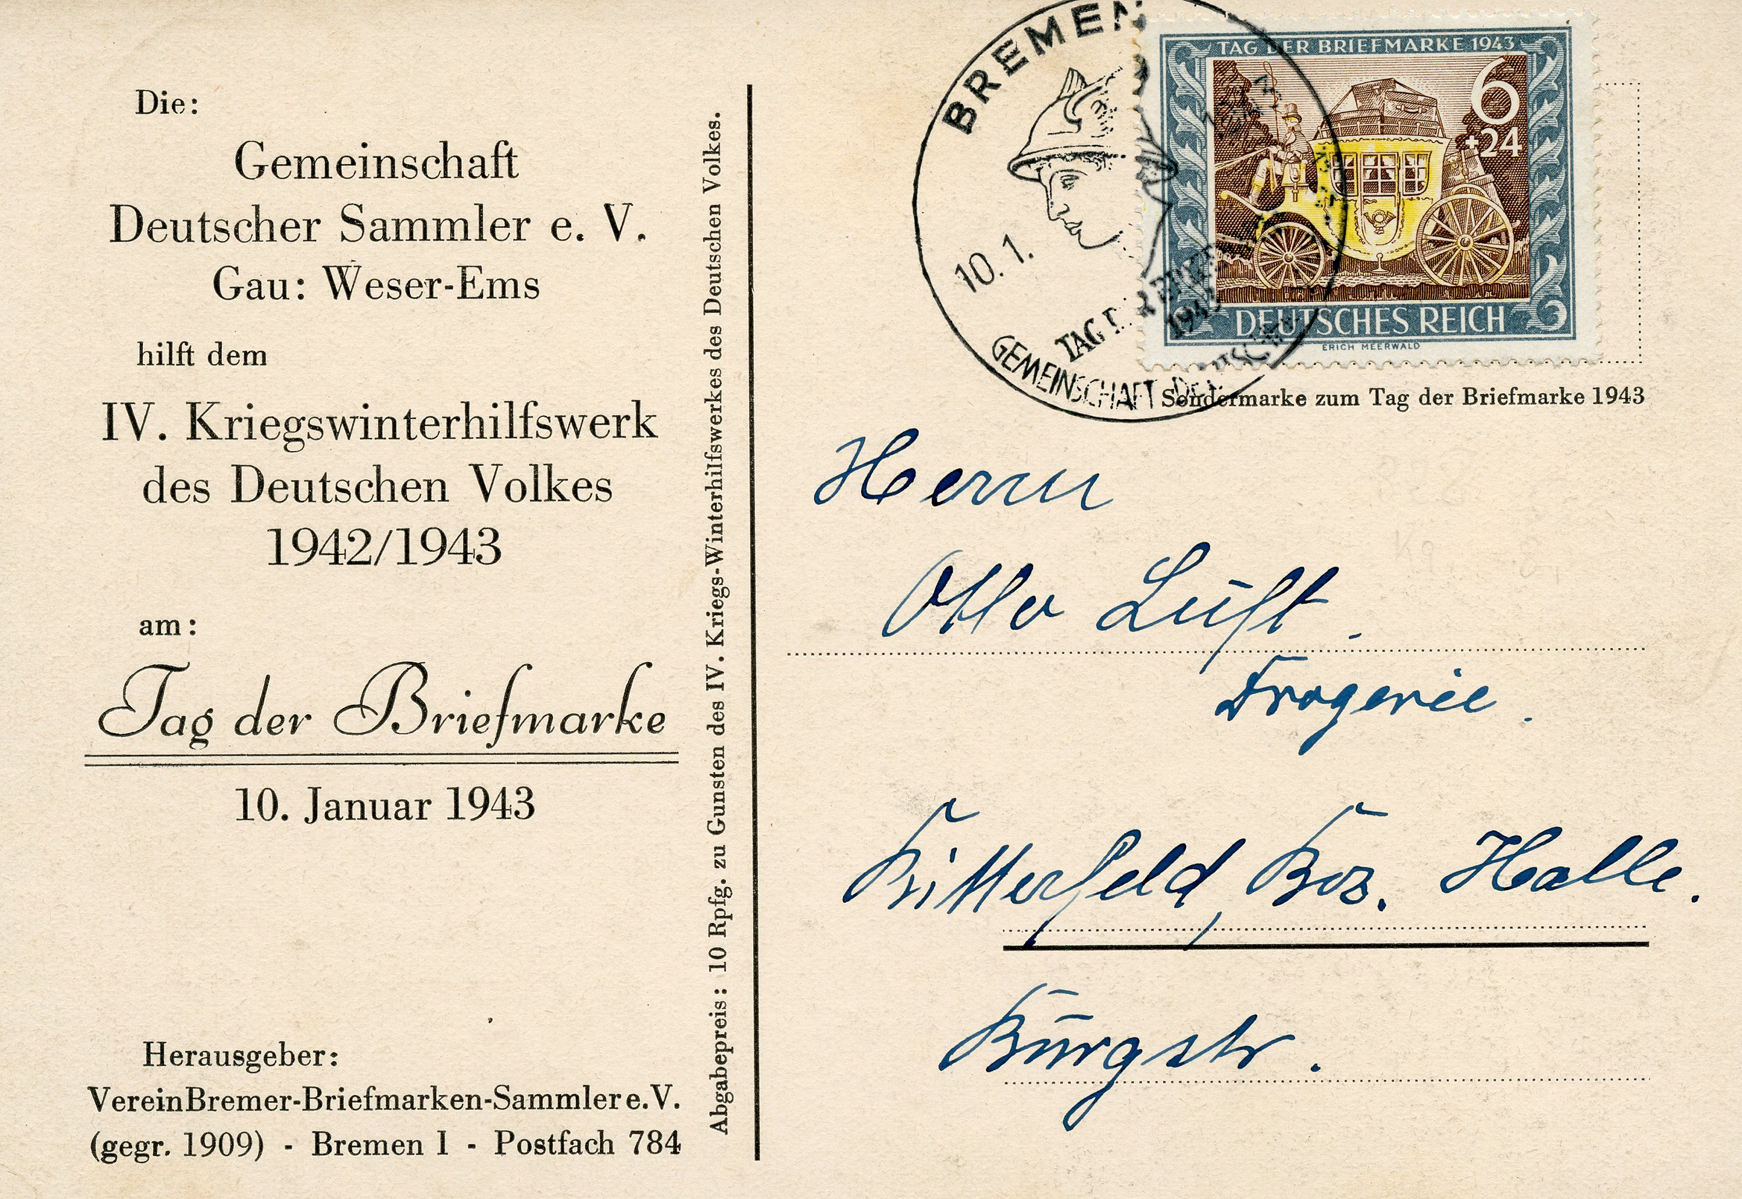 Die:
Gemeinschaft
Deutscher Sammler e. V.
Gau: Weser-Ems
hilft dem
IV. Kriegswinterhilfswerk
des Deutschen Volkes
1942/1943
am:
Tag der Briefmarke
10. Januar 1943
Herausgeber:
Verein Bremer-Briefmarken-Sammler e.V.
(gegr. 1909) - Bremen 1 - Postfach 784
Abgabepreis: 10 Rpfg. zu Gunsten des IV. Kriegs-Winterhilfswerkes des Deutschen Volkes.
BREMEN
10. 1.
TAG DER
1943
GEMEINSCHAFT DEUTSCHER
TAG DER BRIEFMARKE 1943
6
+24
DEUTSCHES REICH
ERICH MEERWALD
Sondermarke zum Tag der Briefmarke 1943
Herrn
Otto Luft.
Drogerie.
Bitterfeld, Bez. Halle.
Burgstr.